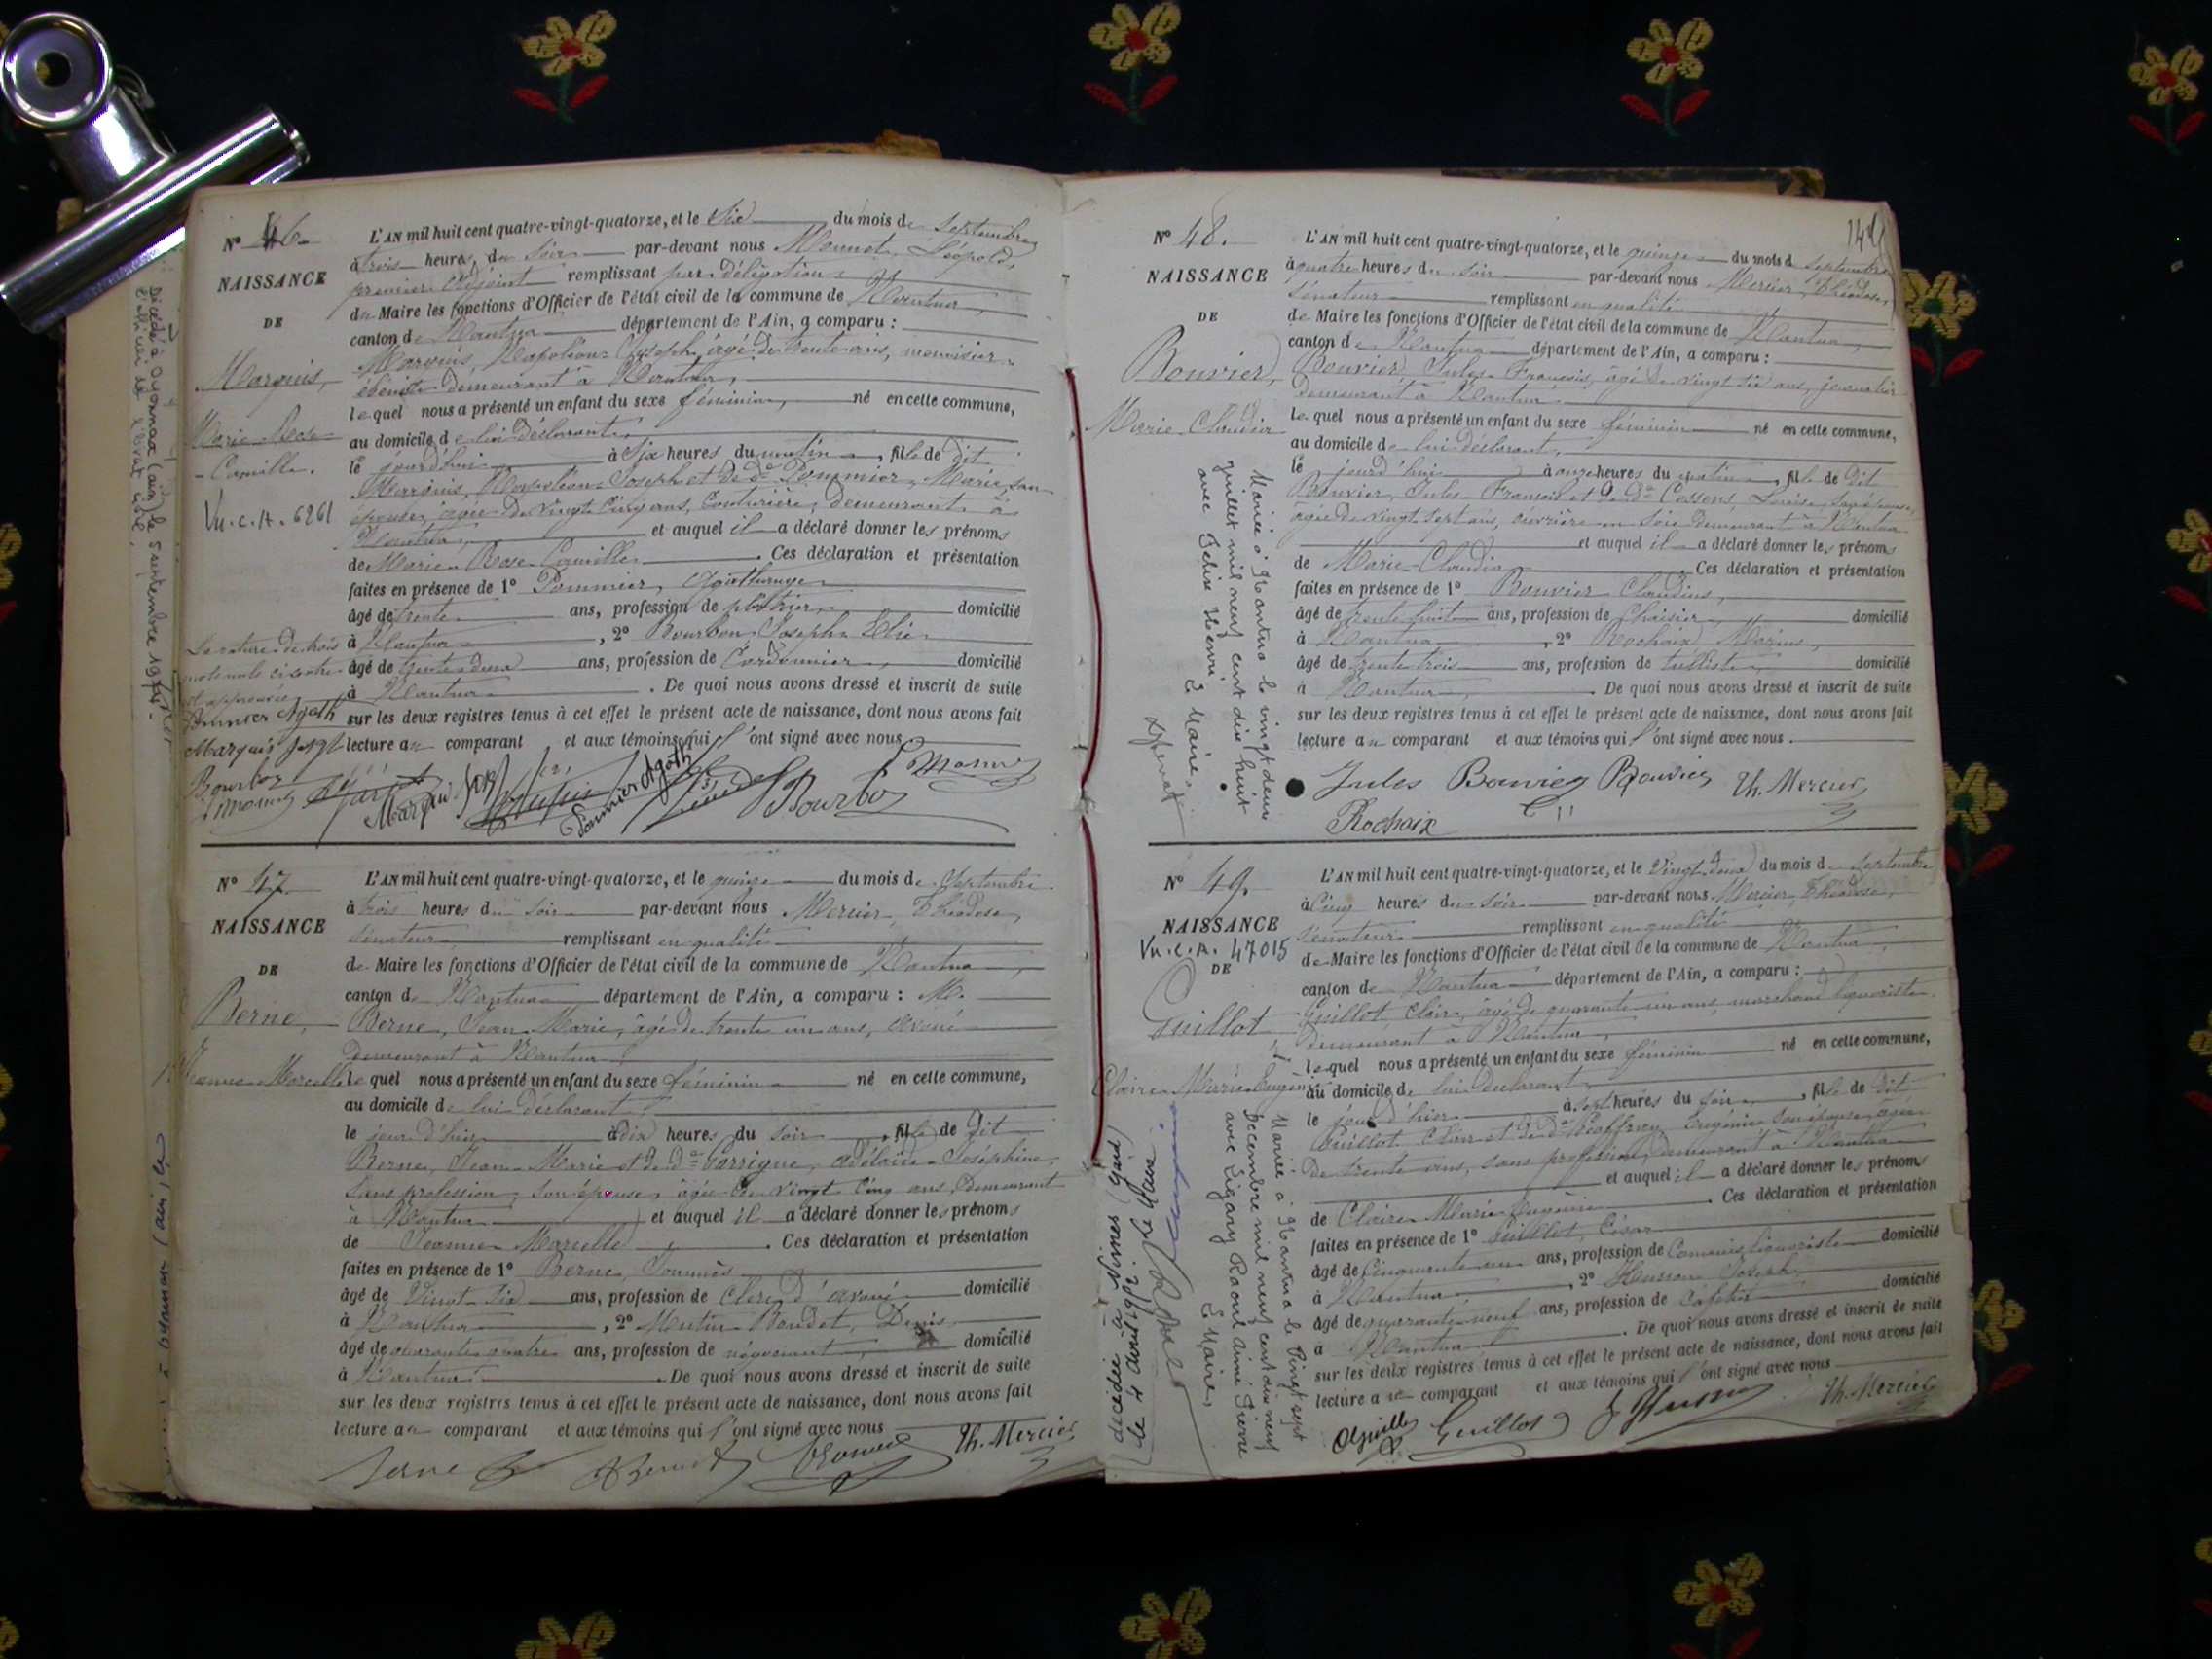 N° 46
NAISSANCE
DE
Marquis,
Marie Rose
- Camille.
Vu. c. A. 6261
L'AN mil huit cent quatre-vingt-quatorze, et le six du mois de septembre
à trois heures du soir par-devant nous Monnet, Léopold,
premier adjoint remplissant par délégation
du Maire les fonctions d'Officier de l'état civil de la commune de Nantua,
canton de Nantua département de l'Ain, a comparu :
Marquis, Napoléon Joseph, âgé de trente ans, menuisier
ébéniste demeurant à Nantua,
lequel nous a présenté un enfant du sexe féminin, né en cette commune,
au domicile de lui déclarant,
le jourd'hui à six heures du matin, fille de dit
Marquis, Napoléon Joseph et de de Pommier, Marie, son
épouse, âgée de vingt cinq ans, couturière, demeurant à
Nantua, et auquel il a déclaré donner les prénoms
de Marie Rose Camille. Ces déclaration et présentation
faites en présence de 1° Pommier,
âgé de trente ans, profession de plâtrier, domicilié
à Nantua, 2° Bourbon, Joseph Elie
âgé de trente deux ans, profession de Cordonnier, domicilié
à Nantua. De quoi nous avons dressé et inscrit de suite
sur les deux registres tenus à cet effet le présent acte de naissance, dont nous avons fait
lecture au comparant et aux témoins qui l'ont signé avec nous.
Pommier Agath
Marquis
Bourbon
Décédé à Oyonnax (ain) le 5 septembre 1974.
N° 47
NAISSANCE
DE
Berne,
Jeanne Marcelle
L'AN mil huit cent quatre-vingt-quatorze, et le quinze du mois de Septembre
à trois heures du soir par-devant nous Mercier, Théodose,
sénateur remplissant en qualité
de Maire les fonctions d'Officier de l'état civil de la commune de Nantua,
canton de Nantua département de l'Ain, a comparu : M.
Berne, Jean Marie, âgé de trente un ans, avoué
demeurant à Nantua
lequel nous a présenté un enfant du sexe féminin né en cette commune,
au domicile de lui déclarant,
le jour d'hier à dix heures du soir, fille de dit
Berne, Jean Marie et de de Garrigue, Adélaïde Joséphine,
sans profession, son épouse, âgée de vingt cinq ans, demeurant
à Nantua et auquel il a déclaré donner les prénoms
de Jeanne Marcelle. Ces déclaration et présentation
faites en présence de 1° Berne,
âgé de vingt six ans, profession de Clerc d'avoué domicilié
à Nantua, 2° Mutin Baudet, Denis,
âgé de quarante quatre ans, profession de négociant, domicilié
à Nantua. De quoi nous avons dressé et inscrit de suite
sur les deux registres tenus à cet effet le présent acte de naissance, dont nous avons fait
lecture au comparant et aux témoins qui l'ont signé avec nous
Berne Th. Mercier
149
N° 48.
NAISSANCE
DE
Bouvier,
Marie Claudia
L'AN mil huit cent quatre-vingt-quatorze, et le quinze du mois de septembre
à quatre heures du soir par-devant nous Mercier, Théodose,
sénateur remplissant en qualité
de Maire les fonctions d'Officier de l'état civil de la commune de Nantua,
canton de Nantua département de l'Ain, a comparu :
Bouvier, Jules François, âgé de vingt six ans, journalier
demeurant à Nantua
lequel nous a présenté un enfant du sexe féminin né en cette commune,
au domicile de lui déclarant,
le jourd'hui à onze heures du matin, fille de dit
Bouvier, Jules François et de de Cossons, Louise, son épouse,
âgée de vingt sept ans, ouvrière en soie demeurant à Nantua
et auquel il a déclaré donner les prénoms
de Marie Claudia. Ces déclaration et présentation
faites en présence de 1° Bouvier Claudius,
âgé de trente huit ans, profession de Chaisier, domicilié
à Nantua, 2° Rochaix, Marius,
âgé de trente trois ans, profession de tulliste, domicilié
à Nantua. De quoi nous avons dressé et inscrit de suite
sur les deux registres tenus à cet effet le présent acte de naissance, dont nous avons fait
lecture au comparant et aux témoins qui l'ont signé avec nous.
Jules Bouvier Bouvier Th. Mercier
Rochaix
Mariée à Nantua le vingt deux
juillet mil neuf cent dix huit
avec Henri. Le Maire,
N° 49.
NAISSANCE
Vu. c. A. 47015
DE
Guillot,
Claire Marie Eugénie
L'AN mil huit cent quatre-vingt-quatorze, et le vingt deux du mois de septembre
à cinq heures du soir par-devant nous Mercier, Théodose,
sénateur remplissant en qualité
de Maire les fonctions d'Officier de l'état civil de la commune de Nantua,
canton de Nantua département de l'Ain, a comparu :
Guillot, Clair, âgé de quarante un ans, marchand liquoriste,
demeurant à Nantua,
lequel nous a présenté un enfant du sexe féminin né en cette commune,
au domicile de lui déclarant,
le jour d'hier à sept heures du soir, fille de dit
Guillot Clair et de de Geoffray, Eugénie, son épouse, âgée
de trente ans, sans profession, demeurant à Nantua
et auquel il a déclaré donner les prénoms
de Claire Marie Eugénie. Ces déclaration et présentation
faites en présence de 1° Guillot, César
âgé de cinquante un ans, profession de Commis liquoriste domicilié
à Nantua, 2° Husson Joseph
âgé de quarante neuf ans, profession de cafetier domicilié
à Nantua. De quoi nous avons dressé et inscrit de suite
sur les deux registres tenus à cet effet le présent acte de naissance, dont nous avons fait
lecture au comparant et aux témoins qui l'ont signé avec nous
Guillot Th. Mercier
Mariée à Nantua le vingt sept
Décembre mil neuf cent dix neuf
avec Ligary Raoul Aimé Pierre
Le Maire,
décédée à Nîmes (Gard)
le 4 Avril 1972. Le Maire.